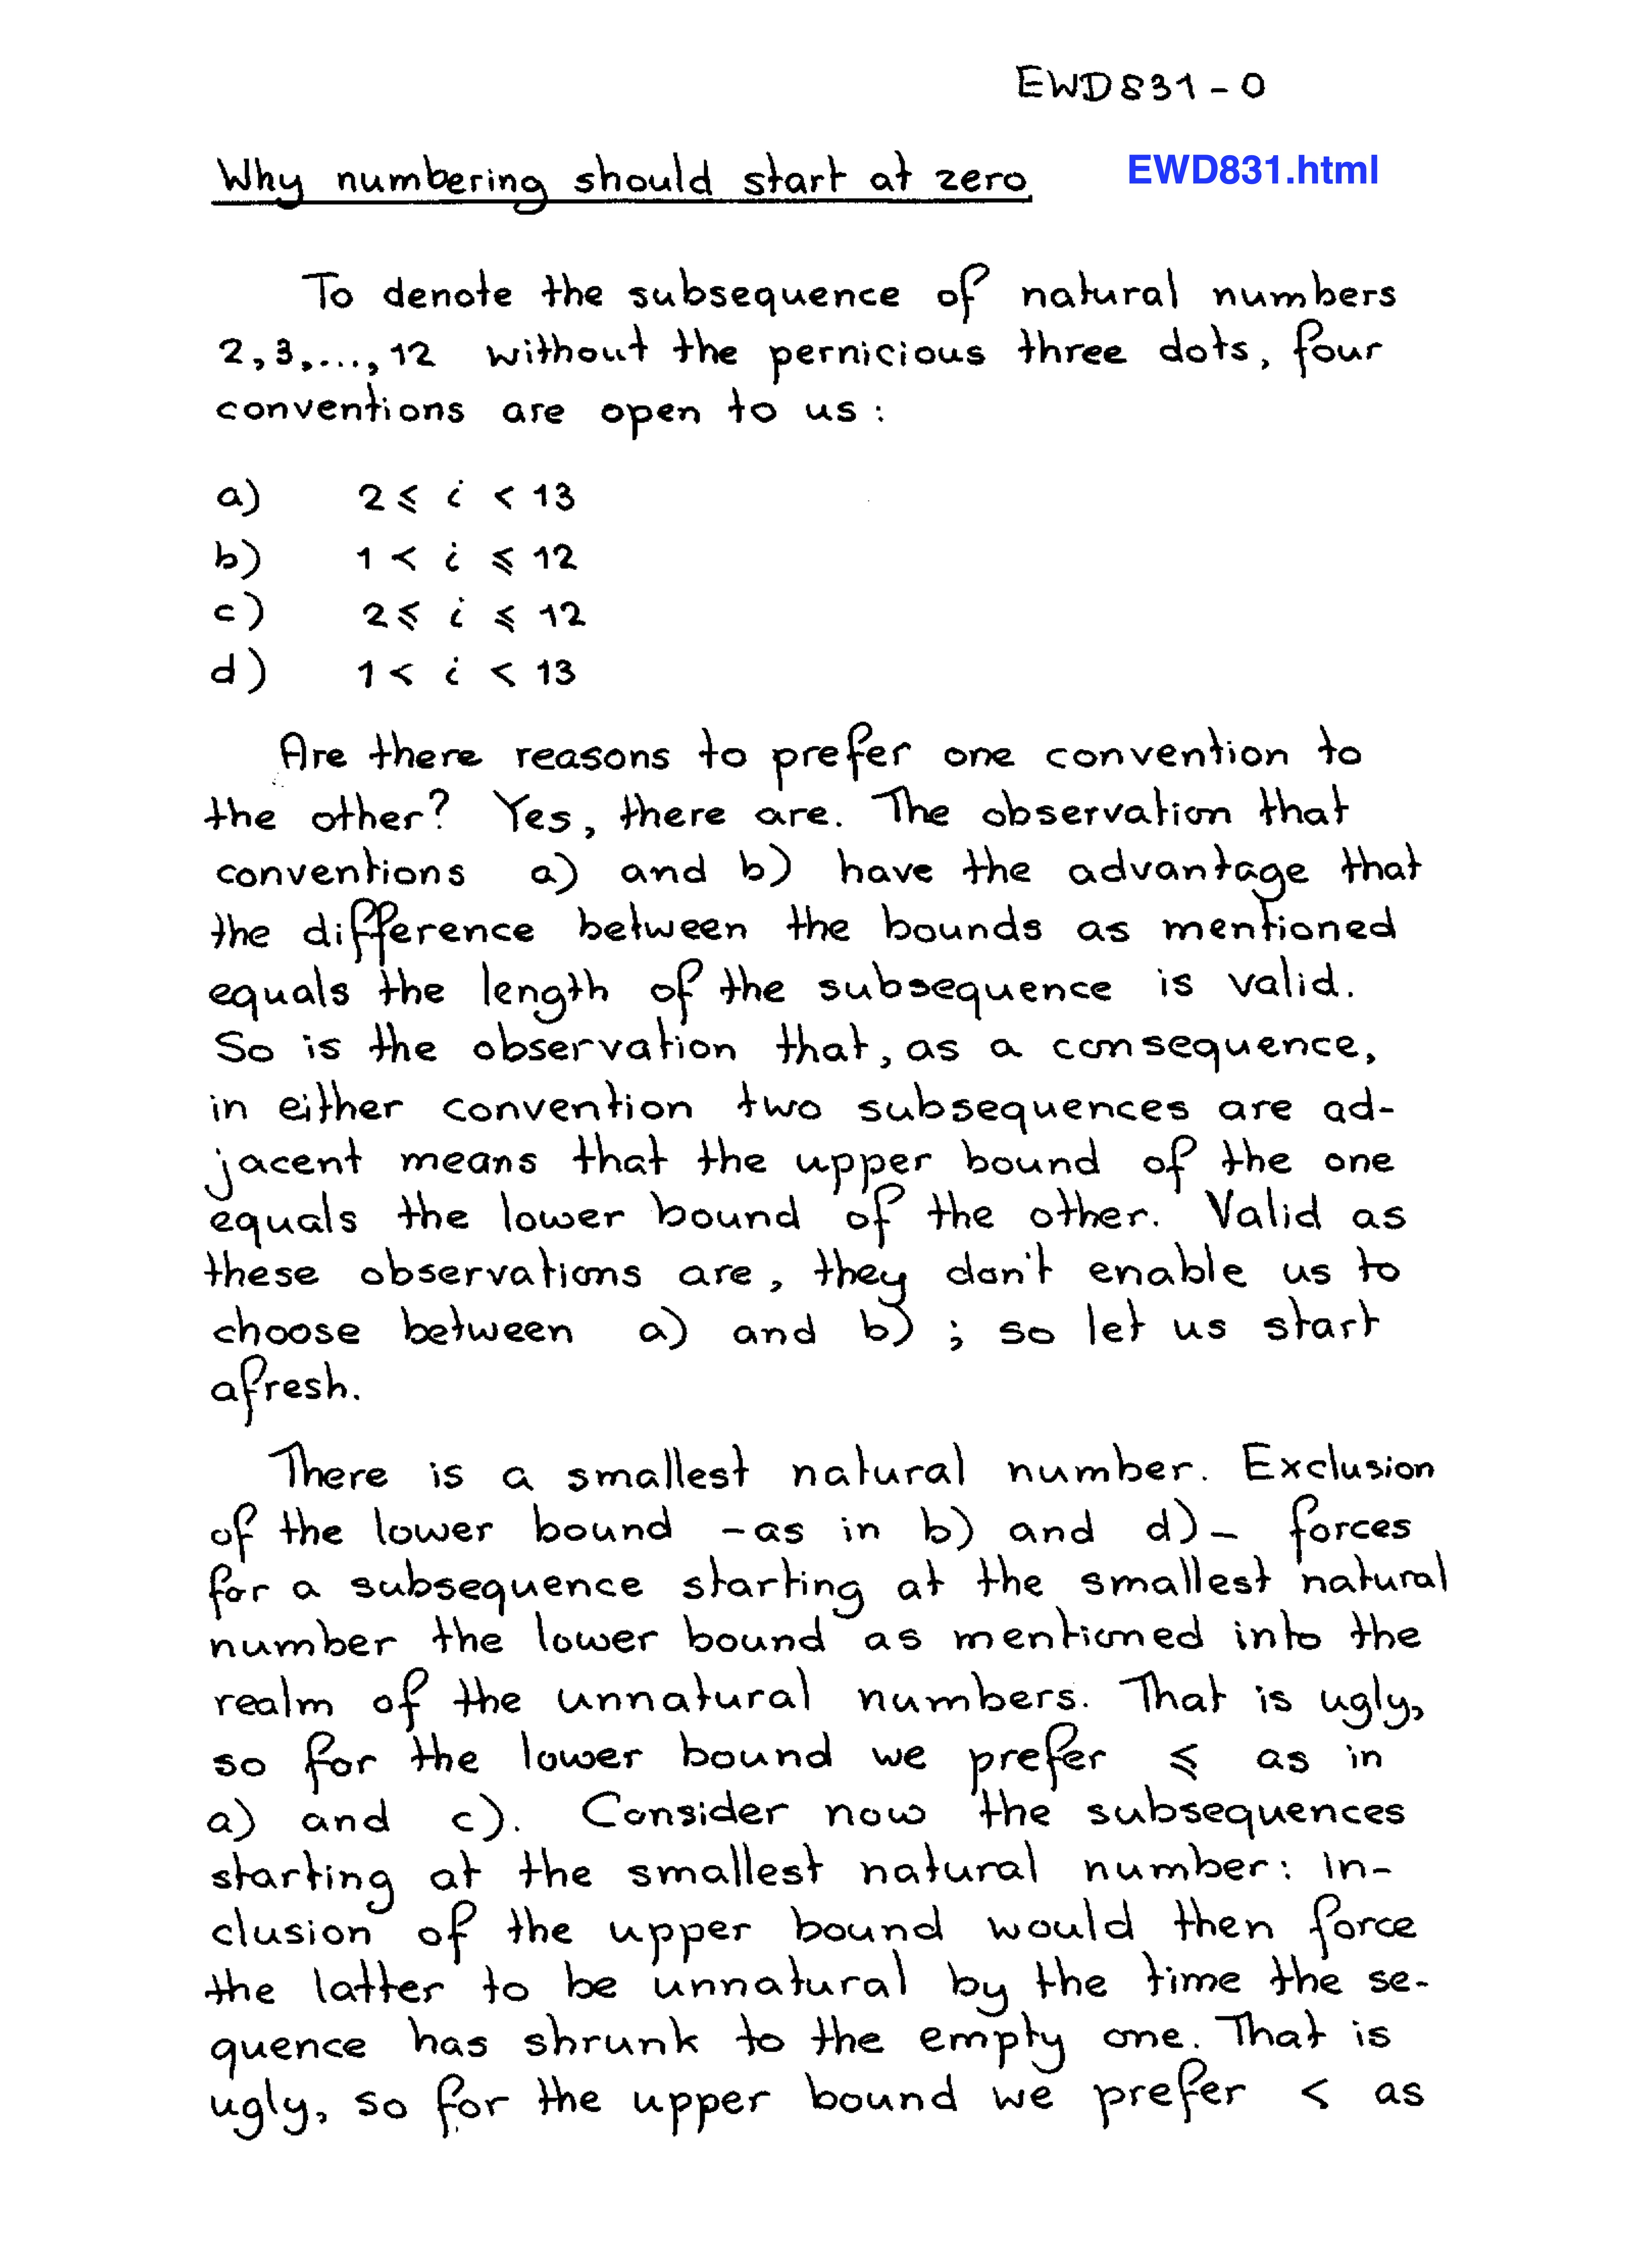 EWD831-0
Why numbering should start at zero
EWD831.html
To denote the subsequence of natural numbers
2,3,...,12 without the pernicious three dots, four
conventions are open to us:
a) 2 ≤ i < 13
b) 1 < i ≤ 12
c) 2 ≤ i ≤ 12
d) 1 < i < 13
Are there reasons to prefer one convention to
the other? Yes, there are. The observation that
conventions a) and b) have the advantage that
the difference between the bounds as mentioned
equals the length of the subsequence is valid.
So is the observation that, as a consequence,
in either convention two subsequences are ad-
jacent means that the upper bound of the one
equals the lower bound of the other. Valid as
these observations are, they don't enable us to
choose between a) and b); so let us start
afresh.
There is a smallest natural number. Exclusion
of the lower bound -as in b) and d)- forces
for a subsequence starting at the smallest natural
number the lower bound as mentioned into the
realm of the unnatural numbers. That is ugly,
so for the lower bound we prefer ≤ as in
a) and c). Consider now the subsequences
starting at the smallest natural number: in-
clusion of the upper bound would then force
the latter to be unnatural by the time the se-
quence has shrunk to the empty one. That is
ugly, so for the upper bound we prefer < as